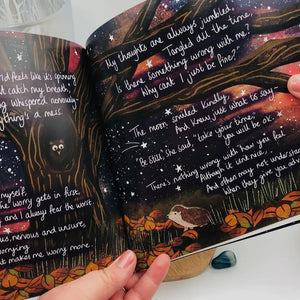 ld feels like it's spinning
t catch my breath,
ng whispered nervously
ything's a mess.
myself,
the worry gets in first,
and I always fear the worst.
us, nervous and unsure,
t makes me worry more.
My thoughts are always jumbled,
Tangled all the time,
Is there something wrong with me?
Why can't I just be fine?"
The moon smiled kindly,
And knew just what to say–
"Be still," she said, "take your time,
you will be ok.
There's nothing wrong with how you feel
Although it isn't nice,
And others may not understand
When they give you advi